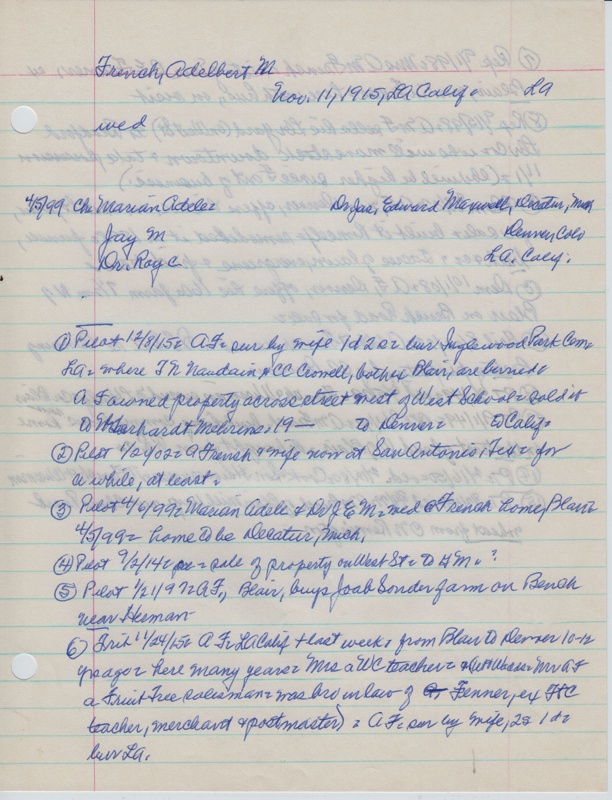 French, Adelbert M
Nov. 11, 1915, LA Calif = LA
wed
4/5/99 Ch: Marian Adele = Dr Jas, Edward Maxwell, Decatur, Mich
Jay M Denver, Colo
Dr. Roy C LA. Calif.
① Pilot 12/8/15 = A F = sur by wife 1d 2s = bur Inglewood Park Cem =
LA = where T N Naudain & CC Crowell, both of Blair, are buried =
A F owned property across street west of West School = sold it
to Gerhardt Mehrens = 19— to Denver = to Calif =
② Pilot 1/2/02 = A French & wife now at San Antonio, Tex = for
a while, at least.
③ Pilot 4/6/99 = Marian Adele & Dr J. E. M = wed @ French home, Blair =
4/5/99 = home to be Decatur, Mich,
④ Pilot 9/2/14 = sale of property on West St = to G M = ?
⑤ Pilot 1/21/97 = A F, Blair, buys Joab Sonder farm on Bench
near Herman
⑥ Trib 11/24/15 = A F = LA Calif + last week = from Blair to Denver 10-12
yr ago = here many years = Mrs a WC teacher = Mr A F
a Fruit Tree salesman = was bro in law of Fenner, ex
teacher, merchant & postmaster) = A F = sur by wife, 2s 1d =
bur LA.